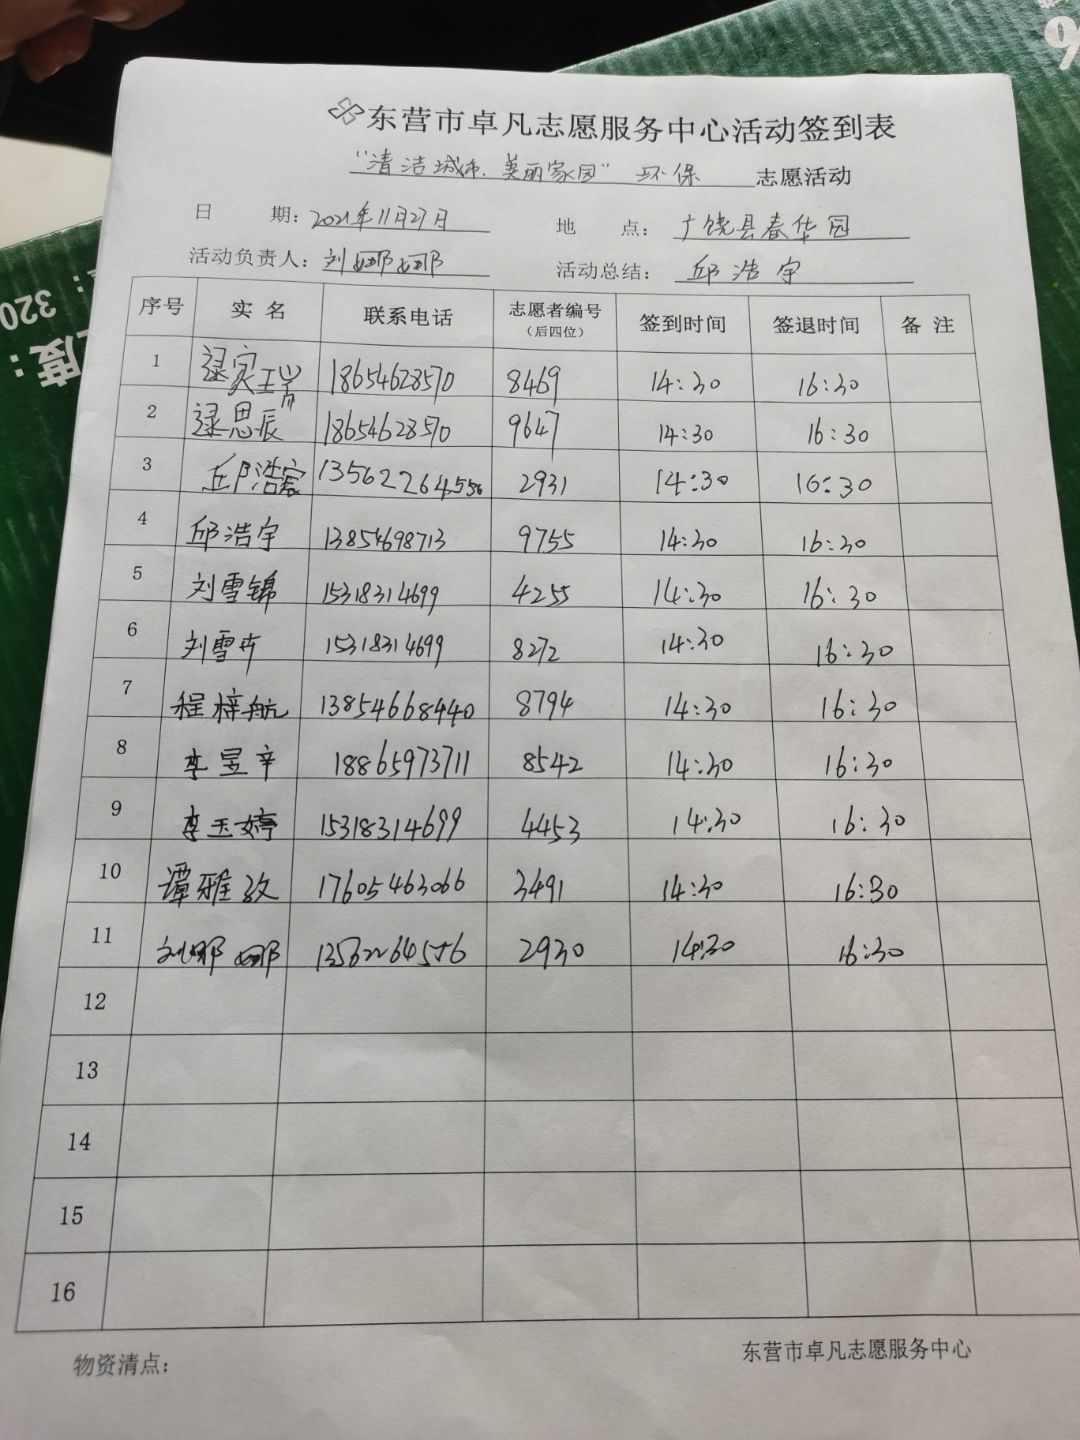 东营市卓凡志愿服务中心活动签到表
“清洁城市、美丽家园” 环保 志愿活动
日 期: 2021年11月27日 地 点: 广饶县春华园
活动负责人: 刘娜娜 活动总结: 邱浩宇
序号 实 名 联系电话 志愿者编号 (后四位) 签到时间 签退时间 备 注
1 18654628570 8469 14:30 16:30
2 逯思辰 18654628570 9647 14:30 16:30
3 邱浩宸 13562264556 2931 14:30 16:30
4 邱浩宇 13854698713 9755 14:30 16:30
5 刘雪锦 15318314699 4255 14:30 16:30
6 刘雪卉 15318314699 8272 14:30 16:30
7 程梓航 13854668440 8794 14:30 16:30
8 李昱辛 18865973711 8542 14:30 16:30
9 李玉婷 15318314699 4453 14:30 16:30
10 谭雅 17605463066 3491 14:30 16:30
11 刘娜娜 13562264556 2930 14:30 16:30
12
13
14
15
16
物资清点:
东营市卓凡志愿服务中心
320
度:
6